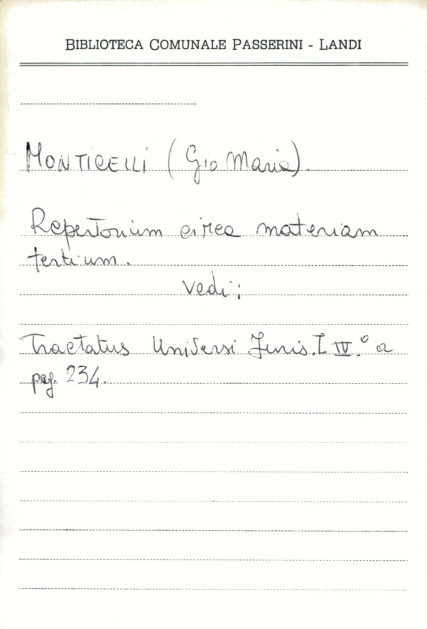 BIBLIOTECA COMUNALE PASSERINI - LANDI
MONTICELLI (Gio Maria).
Repertorium circa materiam
testium.
Vedi:
Tractatus Universi Juris. T IV.° a
pag. 234.